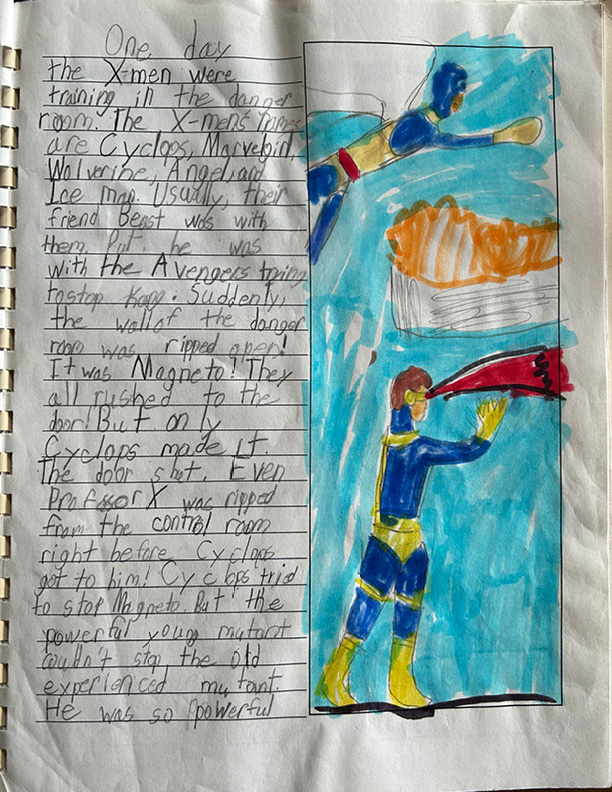 One day
the X-men were
training in the danger
room. The X-men's names
are Cyclops, Marvelgirl,
Wolverine, Angel, and
Ice man. Usually, their
friend Beast was with
them. But, he was
with the Avengers trying
to stop Kang. Suddenly,
the wall of the danger
room was ripped open!
It was Magneto! They
all rushed to the
door! But only
Cyclops made it.
The door shut. Even
Proffsor X was ripped
from the control room
right before Cyclops
got to him! Cyclops tried
to stop Magneto. But the
powerful young mutant
couldn't stop the old
experienced mutant.
He was so powerful